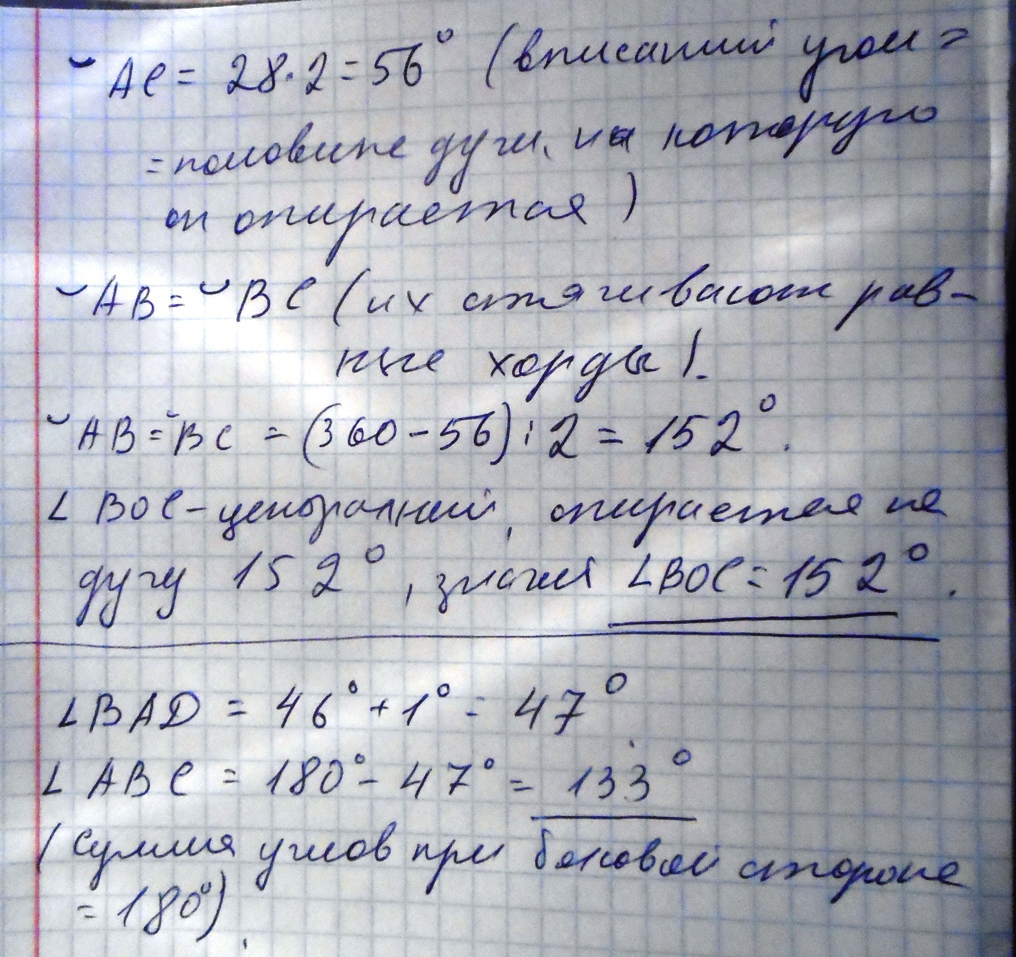 ◡AC = 28·2 = 56° (вписаний угол =
= половине дуги, на которую
он опирается)
◡AB = ◡BC (их стягивают рав-
ные хорды).
◡AB = ◡BC = (360 - 56) : 2 = 152°.
∠BOC - центральный, опирается на
дугу 152°, значит ∠BOC = 152°.
∠BAD = 46° + 1° = 47°
∠ABC = 180° - 47° = 133°
(Сумма углов при боковой стороне
= 180°).